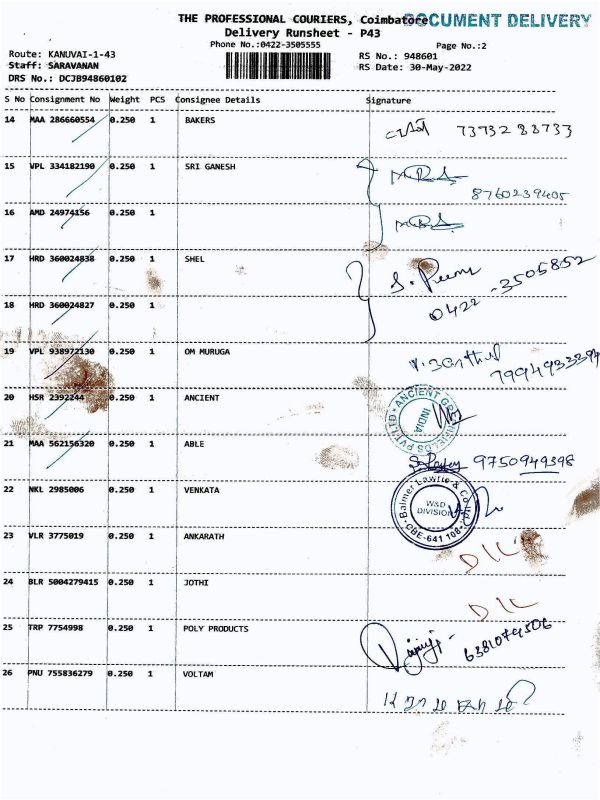 THE PROFESSIONAL COURIERS, Coimbatore
DOCUMENT DELIVERY
Delivery Runsheet - P43
Phone No.:0422-3505555
Page No.:2
Route: KANUVAI-1-43
RS No.: 948601
Staff: SARAVANAN
RS Date: 30-May-2022
DRS No.: DCJB94860102
S No Consignment No Weight PCS Consignee Details Signature
14 MAA 286660554 0.250 1 BAKERS 73732 88733
15 VPL 334182190 0.250 1 SRI GANESH
8760239405
16 AMD 24974156 0.250 1
17 HRD 360024838 0.250 1 SHEL
0422 - 3505852
18 HRD 360024827 0.250 1
19 VPL 938972130 0.250 1 OM MURUGA
7994933394
20 HSR 2392244 0.250 1 ANCIENT
ANCIENT
PVT LTD
INDIA
21 MAA 562156320 0.250 1 ABLE
9750949398
22 NKL 2985006 0.250 1 VENKATA
Balmer Lawrie & Co.
W&D
DIVISION
CBE-641 108
23 VLR 3775019 0.250 1 ANKARATH
DLL
24 BLR 5004279415 0.250 1 JOTHI
DLL
25 TRP 7754998 0.250 1 POLY PRODUCTS
6381079506
26 PNU 755836279 0.250 1 VOLTAM